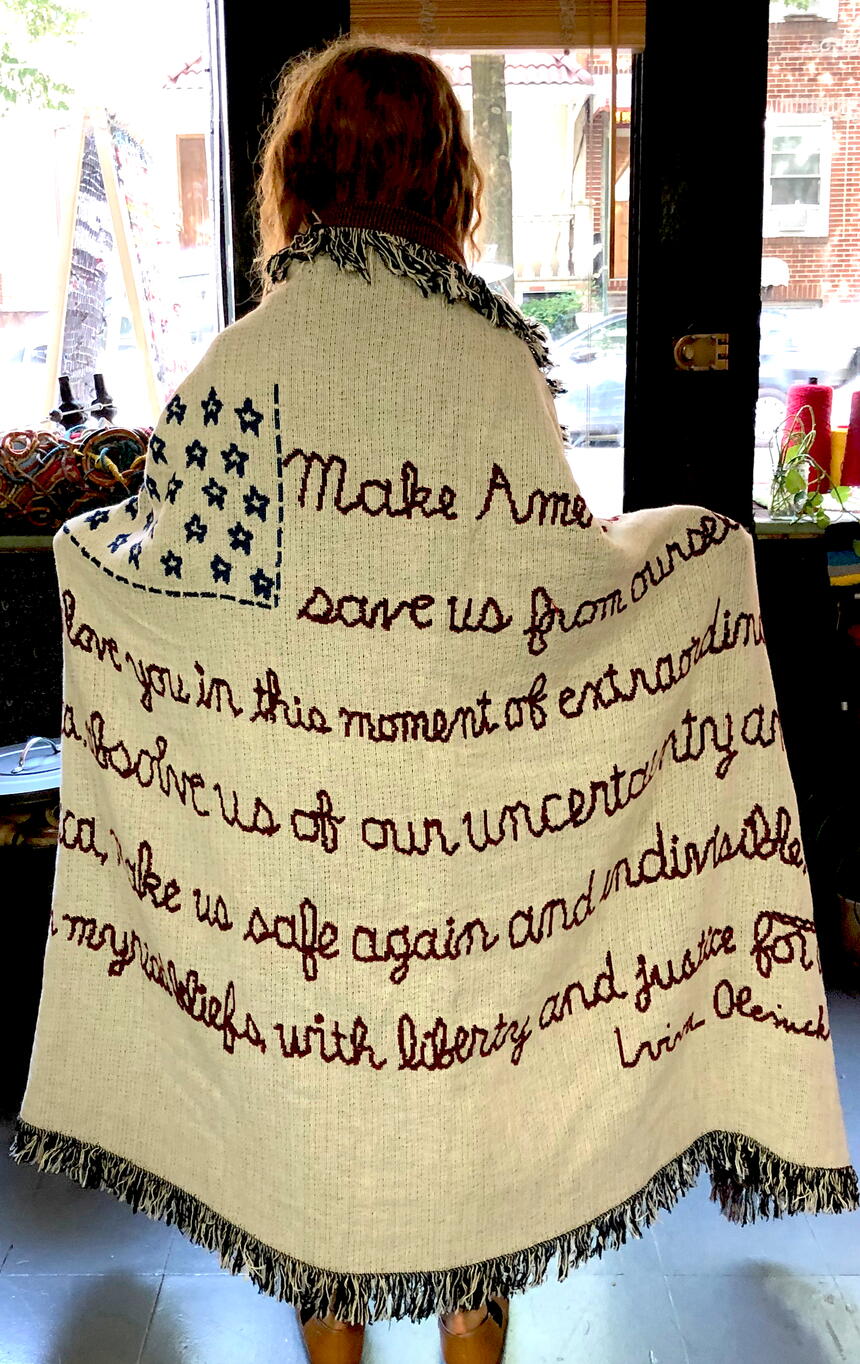 Make Ame
save us from oursel
love you in this moment of extraordin
a, Absolve us of our uncertainty an
ca, make us safe again and indivisible,
myriad beliefs, with liberty and justice for
Olesnick